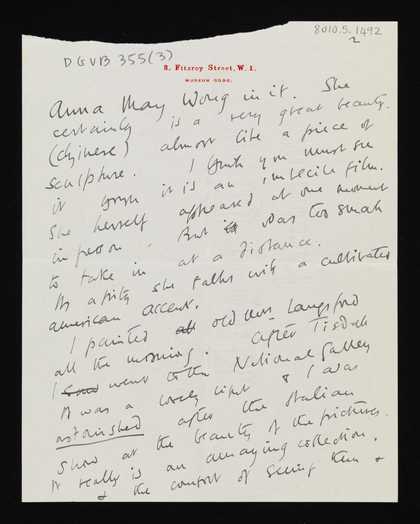 8010.5.1492
2
DGVB 355(3)
8, Fitzroy Street, W.1.
MUSEUM
Anna May Wong in it. She
certainly is a very great beauty.
(Chinese) almost like a piece of
sculpture. I think you must see
it though it is an imbecile film.
She herself appeared at one moment
in person. But it was too small
to take in at a distance.
Its a pity she talks with a cultivated
american accent.
I painted old Mrs Langsford
all the morning. After
I went to the National Gallery
It was a lovely light & I was
astonished after the Italian
Show at the beauty of the pictures.
It really is an amazing collection.
& the comfort of seeing them &